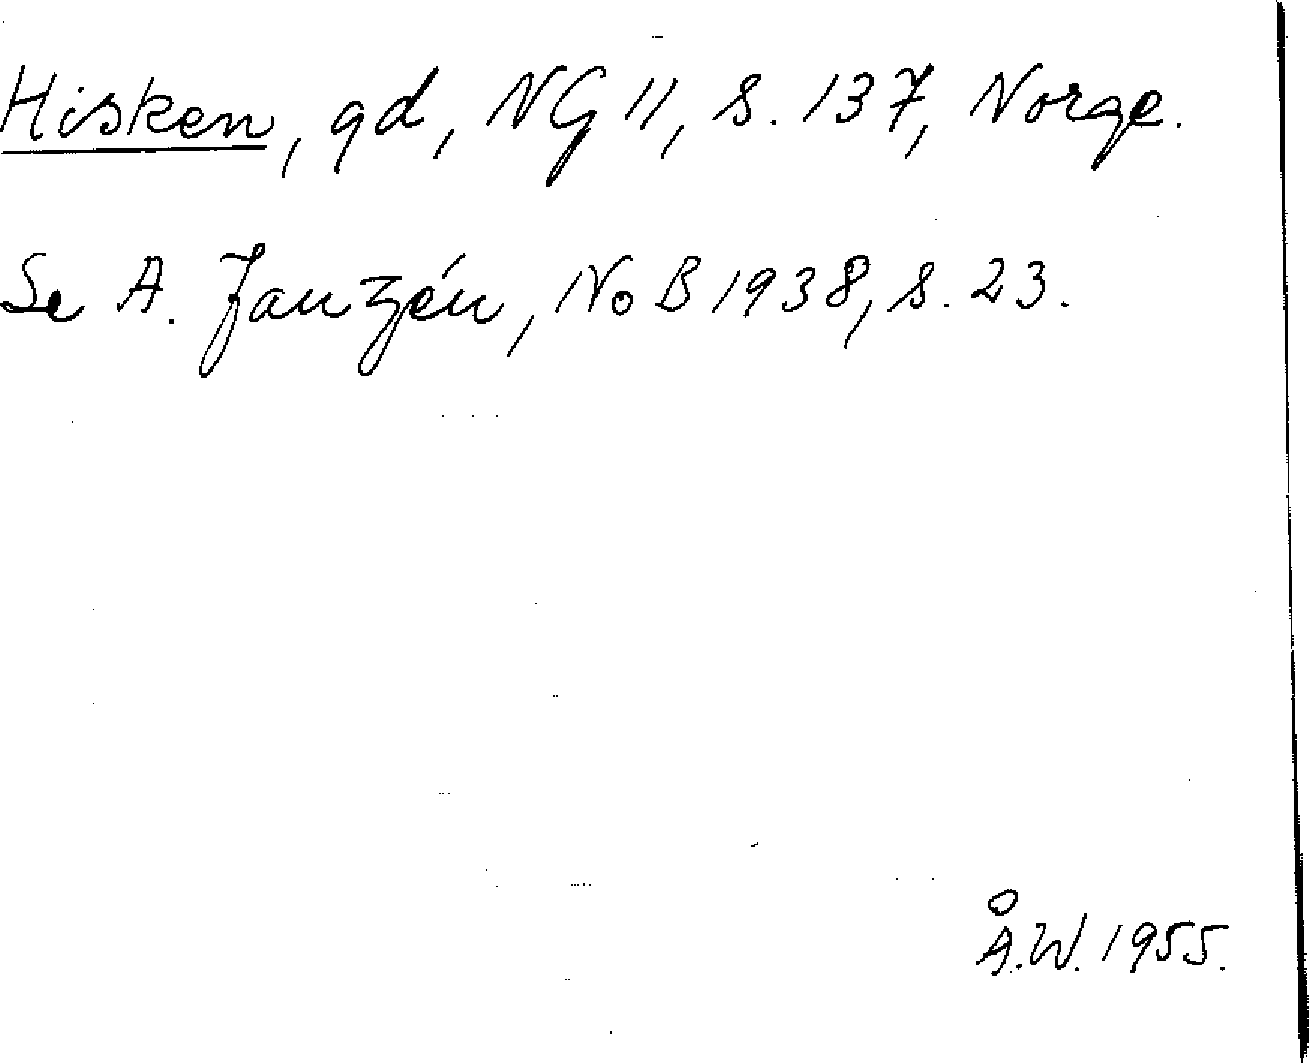 Hisken, gd, NG 11, s. 137, Norge.
Se A. Janzén, NoB 1938, s. 23.
Å.W. 1955.